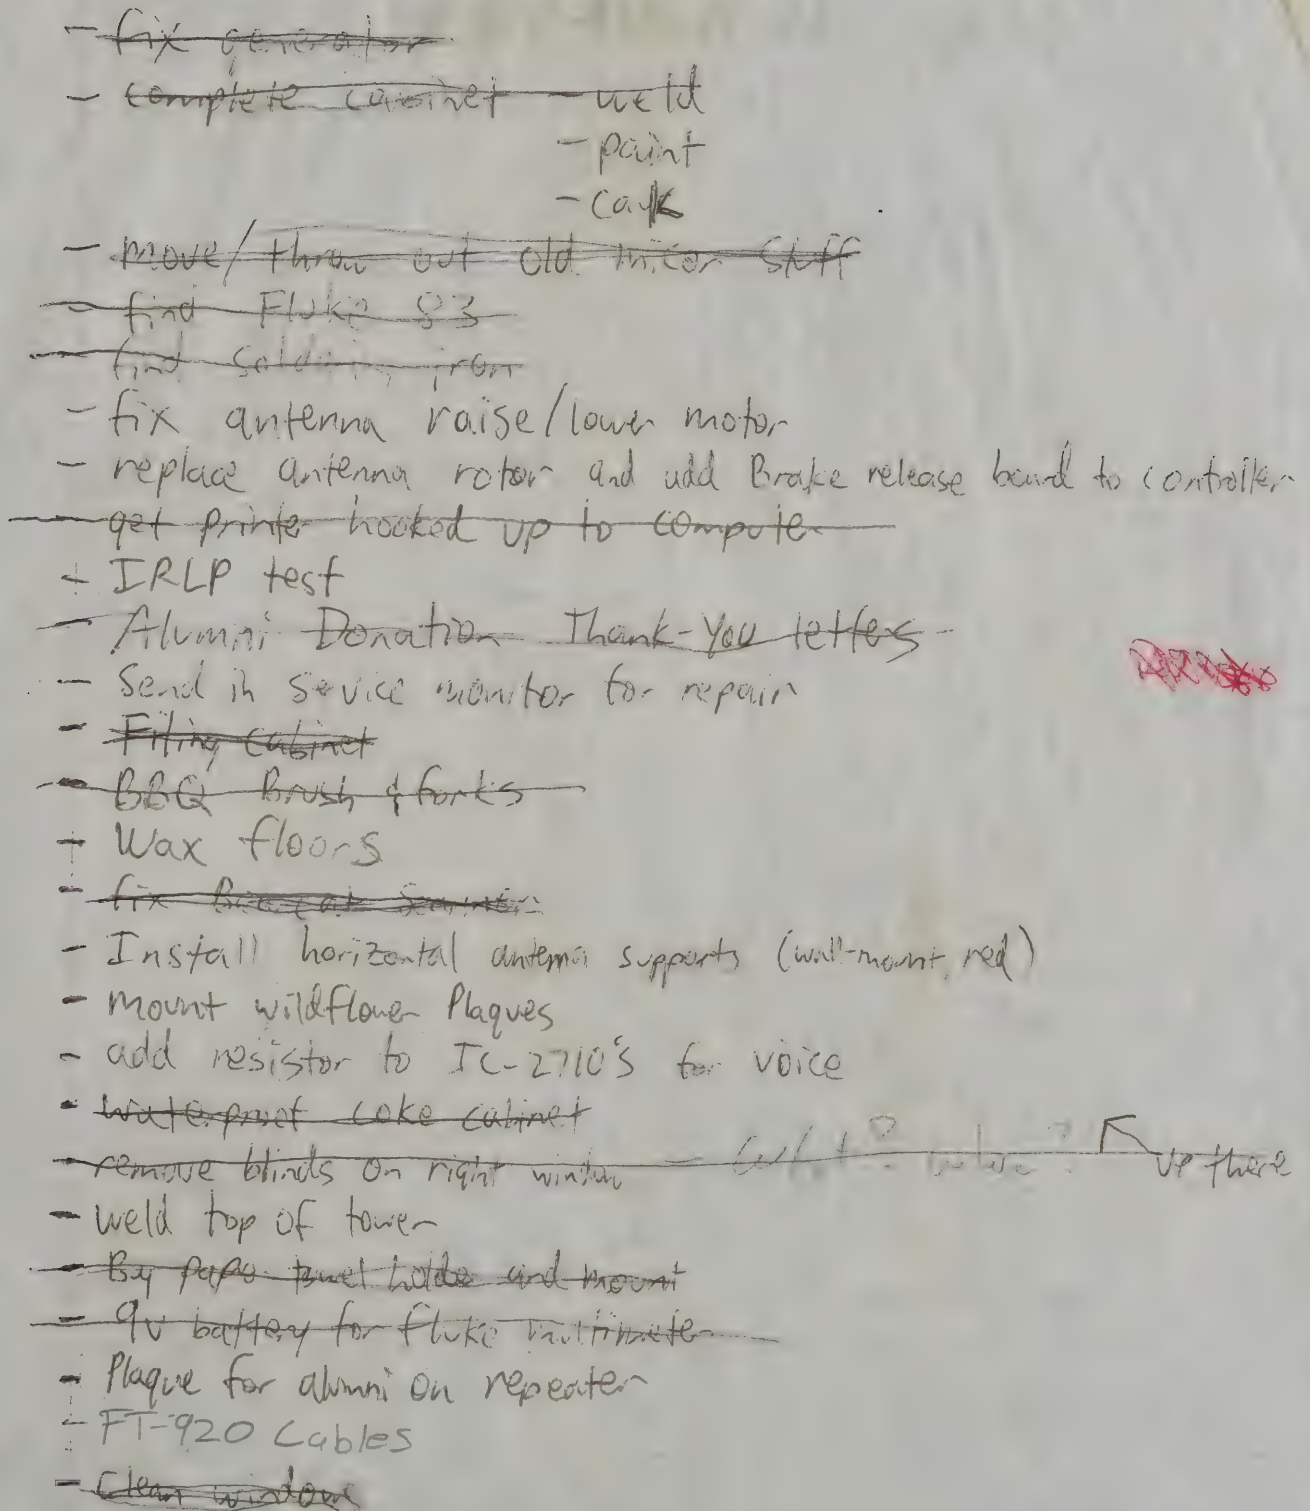 - fix generator
- complete cabinet - weld
- paint
- caulk
- move/throw out old micor stuff
- find Fluke 83
- find soldering iron
- fix antenna raise/lower motor
- replace antenna rotor and add Brake release board to controller
- get printer hooked up to computer
- IRLP test
- Alumni Donation Thank-You letters
- Send in service monitor for repair
- Filing cabinet
- BBQ Brush & forks
- Wax floors
- fix Bearcat Scanner
- Install horizontal antenna supports (wall-mount, red)
- mount wildflower Plaques
- add resistor to IC-2710's for voice
- waterproof coke cabinet
- remove blinds on right window - What? up there
- weld top of tower
- By paper towel holder and mount
- 9v battery for fluke multimeter
- Plaque for alumni on repeater
- FT-920 Cables
- Clean windows